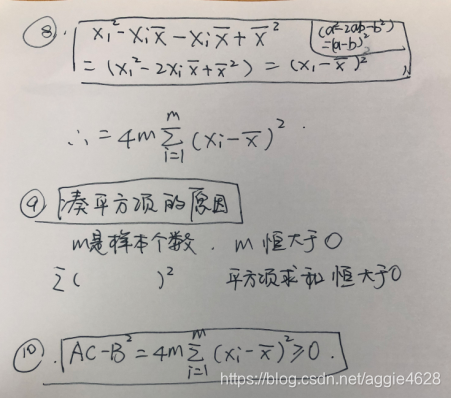 ⑧ x₁² - xᵢx̄ - xᵢx̄ + x̄² (a²-2ab-b²)
=(a-b)²
= (xᵢ² - 2xᵢx̄ + x̄²) = (x₁ - x̄)²
∴ = 4m Σᵢ₌₁ᵐ (xᵢ - x̄)².
⑨ 凑平方项的原因
m是样本个数. m 恒大于0
Σ( )² 平方项求和恒大于0
⑩. AC-B² = 4m Σᵢ₌₁ᵐ (xᵢ - x̄)² ≥ 0.
https://blog.csdn.net/aggie4628